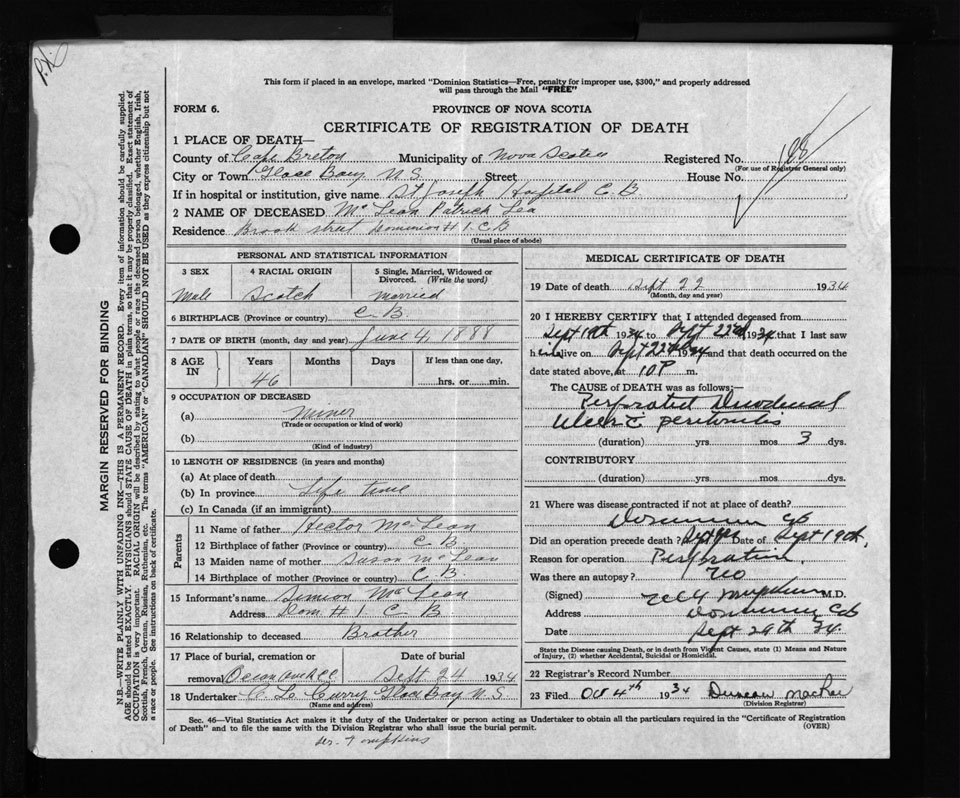 P.L.
This form if placed in an envelope, marked "Dominion Statistics—Free, penalty for improper use, $300," and properly addressed
will pass through the Mail "FREE"
FORM 6.
PROVINCE OF NOVA SCOTIA
CERTIFICATE OF REGISTRATION OF DEATH
1 PLACE OF DEATH—
County of Cape Breton Municipality of Nova Scotia Registered No.
(For use of Registrar General only)
City or Town Glace Bay N.S. Street House No.
If in hospital or institution, give name St Joseph Hospital C.B
2 NAME OF DECEASED Mc Lean Patrick Leo
Residence Brook street Dominion # 1. C.B
(Usual place of abode)
PERSONAL AND STATISTICAL INFORMATION
3 SEX 4 RACIAL ORIGIN 5 Single, Married, Widowed or Divorced. (Write the word)
Male Scotch married
6 BIRTHPLACE (Province or country) C.B.
7 DATE OF BIRTH (month, day and year) June 4, 1888
8 AGE IN Years Months Days If less than one day,
46 hrs. or min.
9 OCCUPATION OF DECEASED
(a) Miner
(Trade or occupation or kind of work)
(b)
(Kind of industry)
10 LENGTH OF RESIDENCE (in years and months)
(a) At place of death
(b) In province Life time
(c) In Canada (if an immigrant)
Parents
11 Name of father Hector Mc Lean
12 Birthplace of father (Province or country) C.B.
13 Maiden name of mother Susan McLean
14 Birthplace of mother (Province or country) C.B.
15 Informant's name Simion Mc Lean
Address Dom # 1 C B
16 Relationship to deceased Brother
17 Place of burial, cremation or removal Date of burial
Sept 24 1934
18 Undertaker C. L. Curry Glace Bay N.S.
(Name and address)
MEDICAL CERTIFICATE OF DEATH
19 Date of death Sept 22 1934
(Month, day and year)
20 I HEREBY CERTIFY that I attended deceased from
Sept 19th 1934 to Sept 22nd, 1934 that I last saw
him alive on Sept 22nd 1934 and that death occurred on the
date stated above, at 10 P m.
The CAUSE of DEATH was as follows:—
Perforated Duodenal
Ulcer c peritonitis
(duration) yrs. mos 3 dys.
CONTRIBUTORY
(duration) yrs. mos. dys.
21 Where was disease contracted if not at place of death?
Dominion CB
Did an operation precede death? yes Date of Sept 19th,
Reason for operation Perforation
Was there an autopsy? No
(Signed) M.D.
Address Dominion CB
Date Sept 29th 34.
State the Disease causing Death, or in death from Violent Causes, state (1) Means and Nature
of Injury, (2) whether Accidental, Suicidal or Homicidal.
22 Registrar's Record Number
23 Filed Oct 4th 1934 Duncan MacRae
(Division Registrar)
Sec. 46—Vital Statistics Act makes it the duty of the Undertaker or person acting as Undertaker to obtain all the particulars required in the "Certificate of Registration
of Death" and to file the same with the Division Registrar who shall issue the burial permit.
(OVER)
Tompkins
MARGIN RESERVED FOR BINDING
N.B.—WRITE PLAINLY WITH UNFADING INK—THIS IS A PERMANENT RECORD. Every item of information should be carefully supplied.
AGE should be stated EXACTLY. PHYSICIANS should STATE CAUSE OF DEATH in plain terms, so that it may be properly classified. Exact statement of
OCCUPATION is very important. RACIAL ORIGIN will be described by stating to what people or race the deceased person belonged, whether English, Irish,
Scottish, French, German, Russian, Ruthenian, etc. The terms "AMERICAN" or "CANADIAN" SHOULD NOT BE USED as they express citizenship but not
a race or people. See instructions on back of certificate.